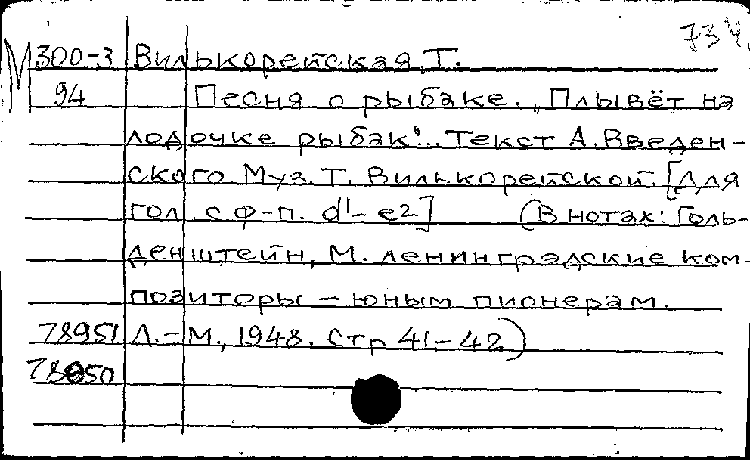 734.
М 300-3 Вилькорейская, Т.
94 Песня о рыбаке. „Плывёт на
лодочке рыбак". Текст А. Введен-
ского Муз. Т. Вилькорейской. [Для
гол с ф-п. d¹- e2] (В нотах: Голь-
денштейн, М. Ленинградские ком-
позиторы – юным пионерам.
78951 Л.–М., 1948. Стр 41–42)
78050